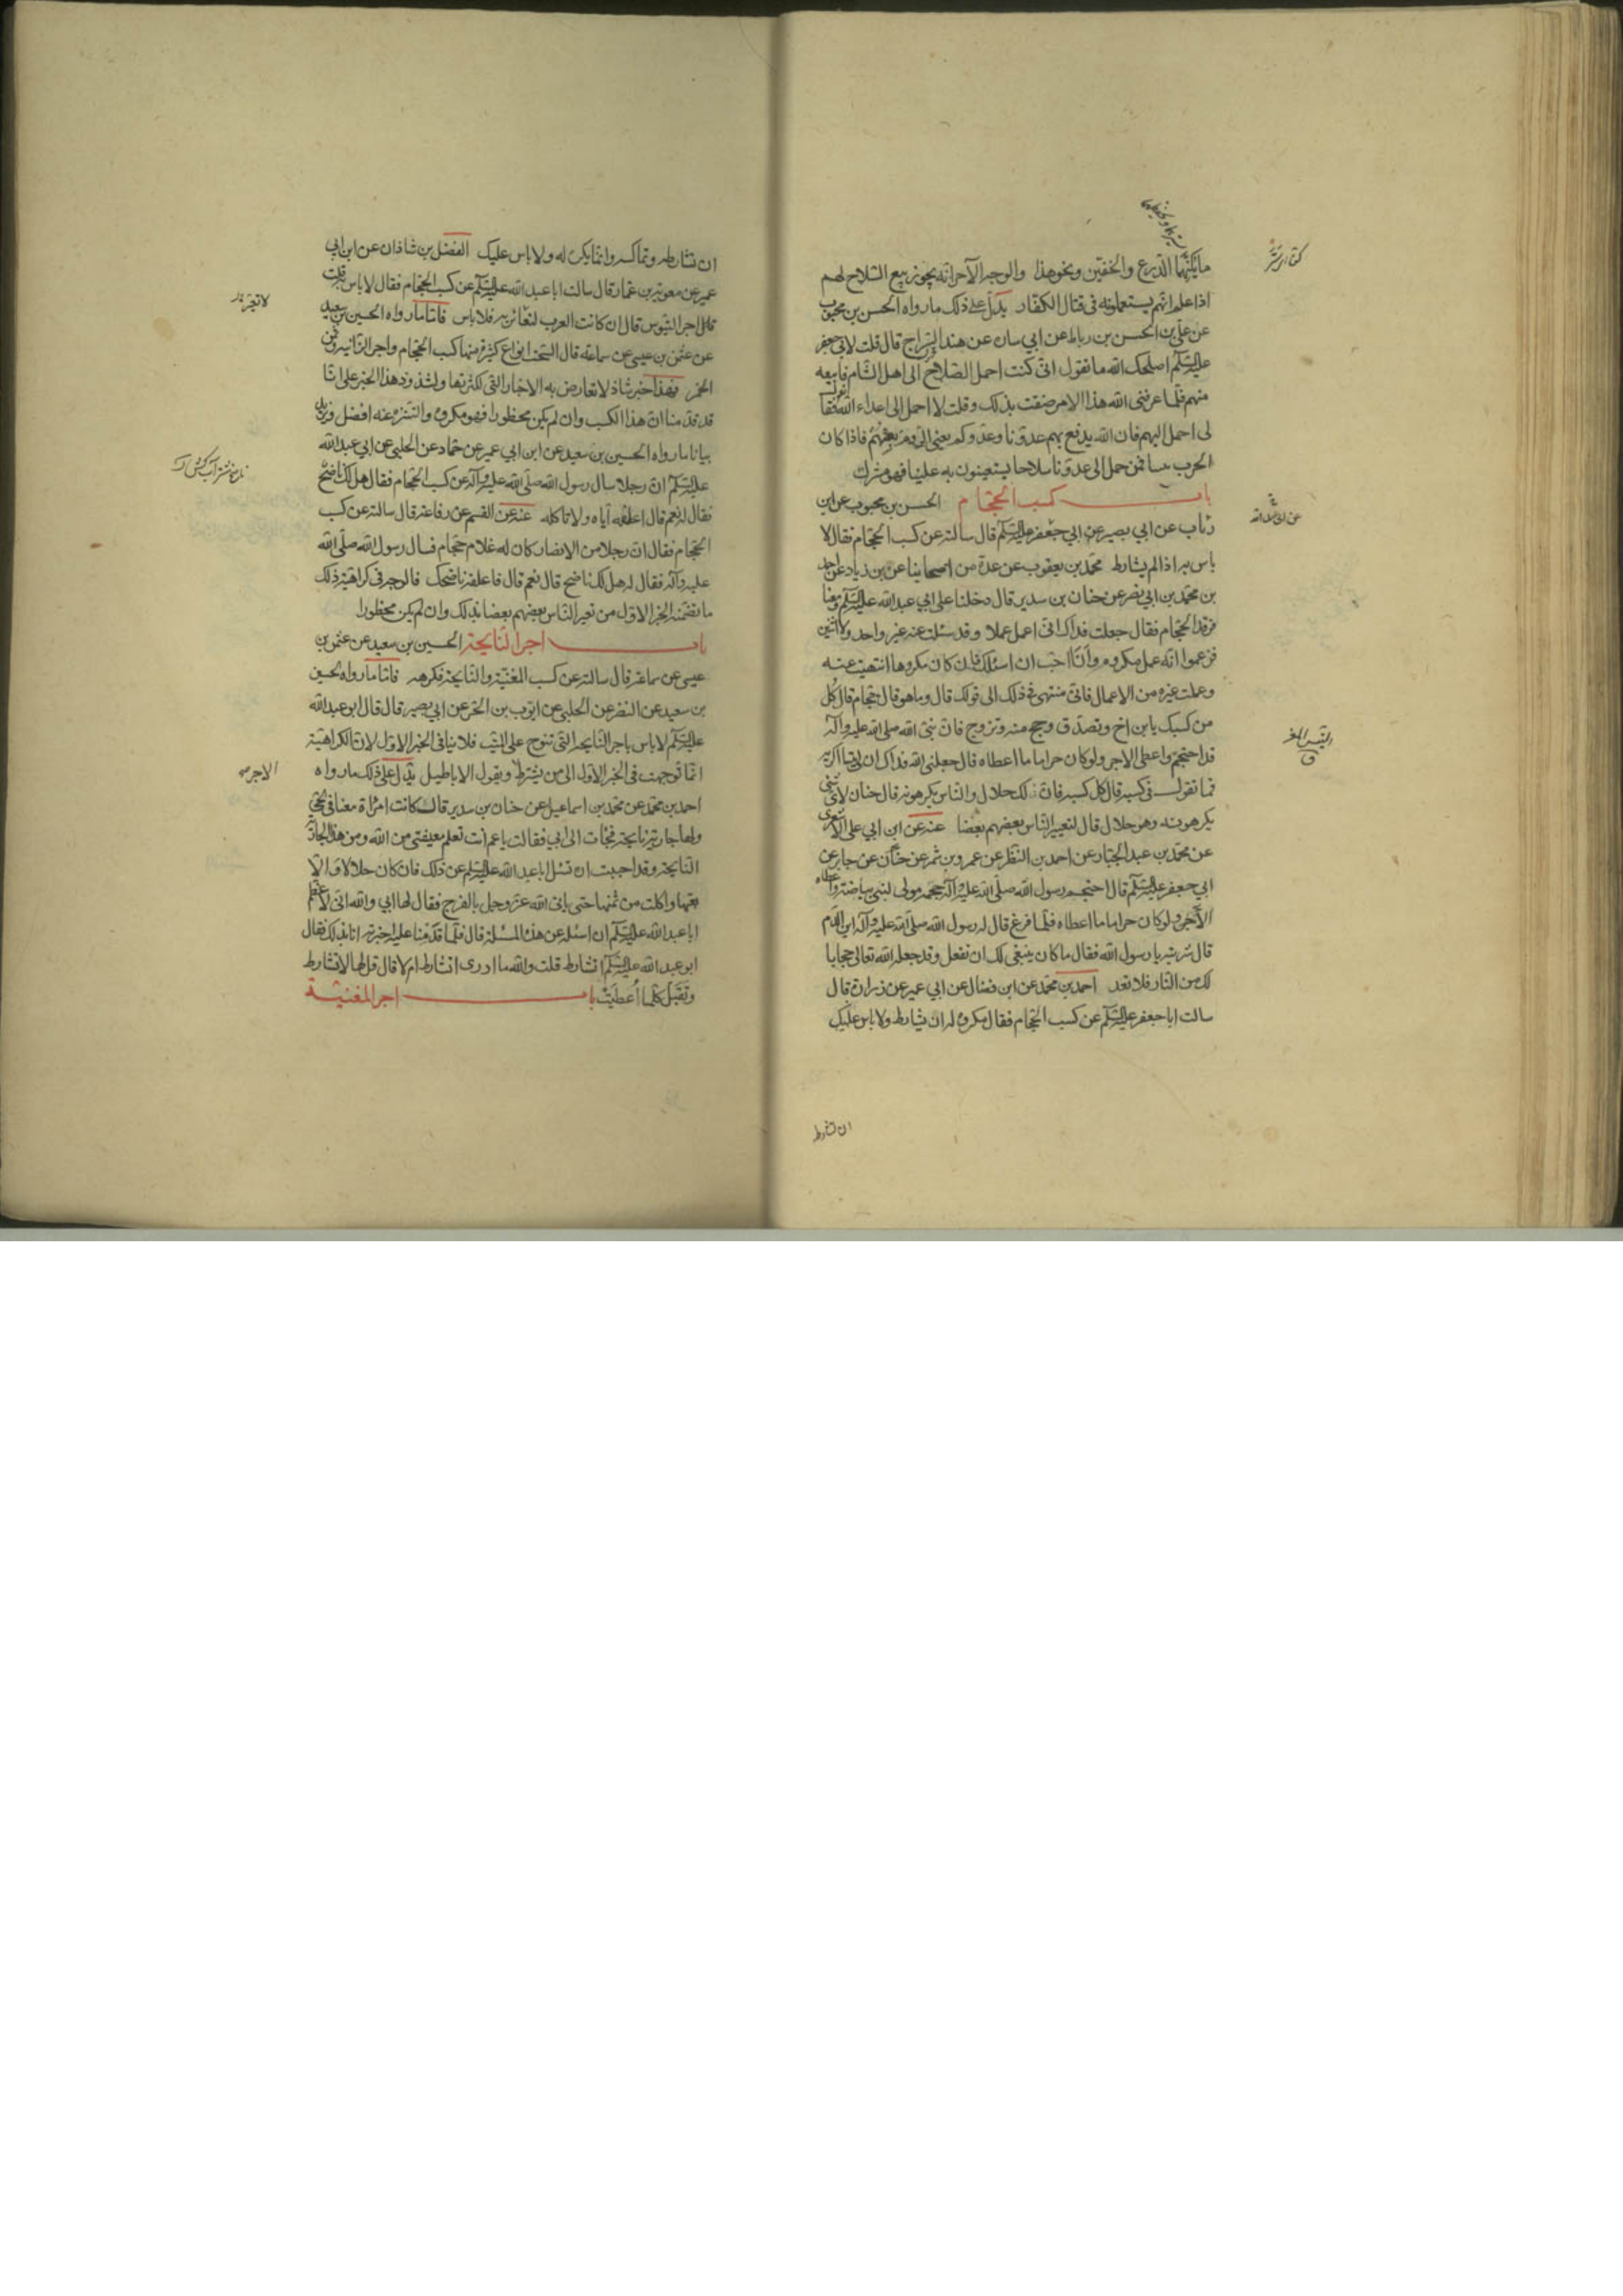 ما يكنهما الدرع والخفين ونحو هذا والوجه الآخر انه يجوز بيع السلاح لهم
اذا علم انهم يستعملونه فى قتال الكفار يدل على ذلك ما رواه الحسن بن محبوب
عن على بن الحسن بن رباط عن ابي سان عن هند السراج قال قلت لابي جعفر
عليه السلم اصلحك الله ما تقول انى كنت احمل السلاح الى اهل الشام فابيعه
منهم فلما عرفنى الله هذا الامر ضقت بذلك وقلت لا احمل الى اعداء الله فقال
لى احمل اليهم فان الله يدفع بهم عدونا وعدوكم يعنى الروم بعهم فاذا كان
الحرب بيننا فمن حمل الى عدونا سلاحا يستعينون به علينا فهو مشرك
باب كسب الحجام الحسن بن محبوب عن ابن
رئاب عن ابي بصير عن ابي جعفر عليه السلم قال سالته عن كسب الحجام فقال لا
باس به اذا لم يشارط محمد بن يعقوب عن عدة من اصحابنا عن بن زياد عن احمد
بن محمد بن ابي نصر عن حنان بن سدير قال دخلنا على ابي عبد الله عليه السلم ومعنا
فرقد الحجام فقال جعلت فداك انى اعمل عملا وقد سئلت عنه غير واحد ولا اثنين
فزعموا انه عمل مكروه وانا احب ان اسئلك فان كان مكروها انتهيت عنه
وعملت غيره من الاعمال فانى منتهى فى ذلك الى قولك قال وما هو قال حجام قال كل
من كسبك يابن اخ وتصدق وحج منه وتزوج فان نبى الله صلى الله عليه وآله
قد احتجم واعطى الاجر ولو كان حراما ما اعطاه قال جعلنى الله فداك ان لى تيسا اكريه
فما تقول فى كسبه قال كل كسبه فانه لك حلال والناس يكرهونه قال حنان لاى شى
يكرهونه وهو حلال قال لتعيير الناس بعضهم بعضا عنه عن ابن ابي على الاشعرى
عن محمد بن عبد الجبار عن احمد بن النظر عن عمرو بن شمر عن حنان عن جابر عن
ابي جعفر عليه السلم قال احتجم رسول الله صلى الله عليه وآله حجمه مولى لبنى بياضة واعطاه
الاجر ولو كان حراما ما اعطاه فلما فرغ قال له رسول الله صلى الله عليه وآله اين الدم
قال شربته يا رسول الله فقال ما كان ينبغى لك ان تفعل وقد جعله الله تعالى حجابا
لك من النار فلا تعد احمد بن محمد عن ابن فضال عن ابي عمير عن زرارة قال
سالت ابا جعفر عليه السلم عن كسب الحجام فقال مكروه له ان يشارط ولا باس عليك
ان تشارط
ان تشارطه وتماكسه وانما يكره له ولا باس عليك الفضل بن شاذان عن ابن ابي
عمير عن معوية بن عمار قال سالت ابا عبد الله عليه السلم عن كسب الحجام فقال لا باس قلت
قلت اجر التيوس قال ان كانت العرب لتعاير به فلا باس فاما ما رواه الحسين بن سعيد
عن عثمن بن عيسى عن سماعه قال السحت انواع كثيرة منها كسب الحجام واجر الزانيه وثمن
الخمر فهذا خبر شاذ لا تعارض به الاخبار التى لكثرتها ولشذوذ هذا الخبر على انا
قد قدمنا ان هذا الكسب وان لم يكن محظورا فهو مكروه والتنزه عنه افضل ويزيد
بيانا ما رواه الحسين بن سعيد عن ابن ابي عمير عن حماد عن الحلبى عن ابي عبد الله
عليه السلم ان رجلا سال رسول الله صلى الله عليه وآله عن كسب الحجام فقال هل لك ناضح
فقال له نعم قال اعلفه اياه ولا تاكله عنه عن القسم عن رفاعة قال سالته عن كسب
الحجام فقال ان رجلا من الانصار كان له غلام حجام فسال رسول الله صلى الله
عليه وآله فقال له هل لك ناضح قال نعم قال فاعلفه ناضحك فالوجه فى كراهية ذلك
ما تضمنه الخبر الاول من تعير الناس بعضهم بعضا بذلك وان لم يكن محظورا
باب اجر النايحة الحسين بن سعيد عن عثمن بن
عيسى عن سماعة قال سالته عن كسب المغنية والنايحة فكرهه فاما ما رواه الحسين
بن سعيد عن النضر عن الحلبى عن ايوب بن الحر عن ابي بصير قال قال ابو عبد الله
عليه السلم لا باس باجر النايحة التى تنوح على الميت فلا ينافى الخبر الاول لان الكراهية
انما توجهت فى الخبر الاول الى من يشترط ويقول الاباطيل يدل على ذلك ما رواه
احمد بن محمد عن محمد بن اسماعيل عن حنان بن سدير قال كانت امراة معنا فى الحى
ولها جارية نايحة فجاءت الى ابي فقالت يا عم انت تعلم معيشتى من الله ومن هذه الجارية
النايحة وقد احببت ان تسئل ابا عبد الله عليه السلم عن ذلك فان كان حلالا والا
بعتها واكلت من ثمنها حتى ياتى الله عز وجل بالفرج فقال لها ابي والله انى لاعظم
ابا عبد الله عليه السلم ان اسئله عن هذه المسئلة قال فلما قدمنا عليه اخبرته انا بذلك فقال
ابو عبد الله عليه السلم اتشارط قلت والله ما ادرى اتشارط ام لا قال قل لها لا تشارط
وتقبل كلما اعطيت باب اجر المغنية